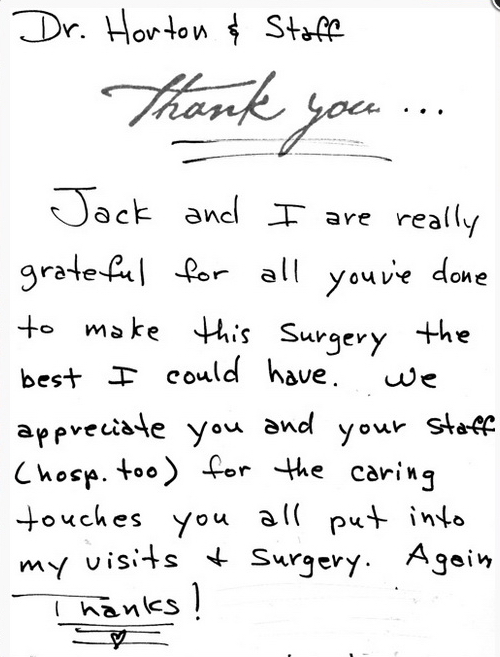 Dr. Horton & Staff
Thank you...
Jack and I are really
grateful for all you've done
to make this Surgery the
best I could have. We
appreciate you and your staff
(hosp. too) for the caring
touches you all put into
my visits & Surgery. Again
Thanks!